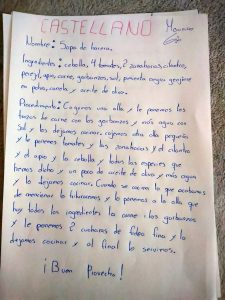 CASTELLANO
Nombre: Sopa de harera.
Ingredientes: cebolla, 4 tomates, 2 zanahorias, cilantro,
perejil, apio, carne, garbanzos, sal, pimienta negra, gengibre
en polvo, canela y aceite de oliva.
Procedimiento: Cogemos una olla y le ponemos los
trozos de carne con los garbanzos y más agua con
sal y los dejamos cocinar, cojemos otra olla pequeña
y le ponemos tomates y las zanahorias y el cilantro
y el apio y la cebolla y todas las especies que
hemos dicho y un poco de aceite de oliva y más agua
y lo dejamos cocinar. Cuando se cocina lo que acabamos
de mencionar lo trituraremos y lo ponemos a la olla que
hay todos los ingredientes la carne i los garbanzos
y le ponemos 2 cucharas de fideo fino y lo
dejamos cocinar y al final lo servimos.
¡Buen Provecho!